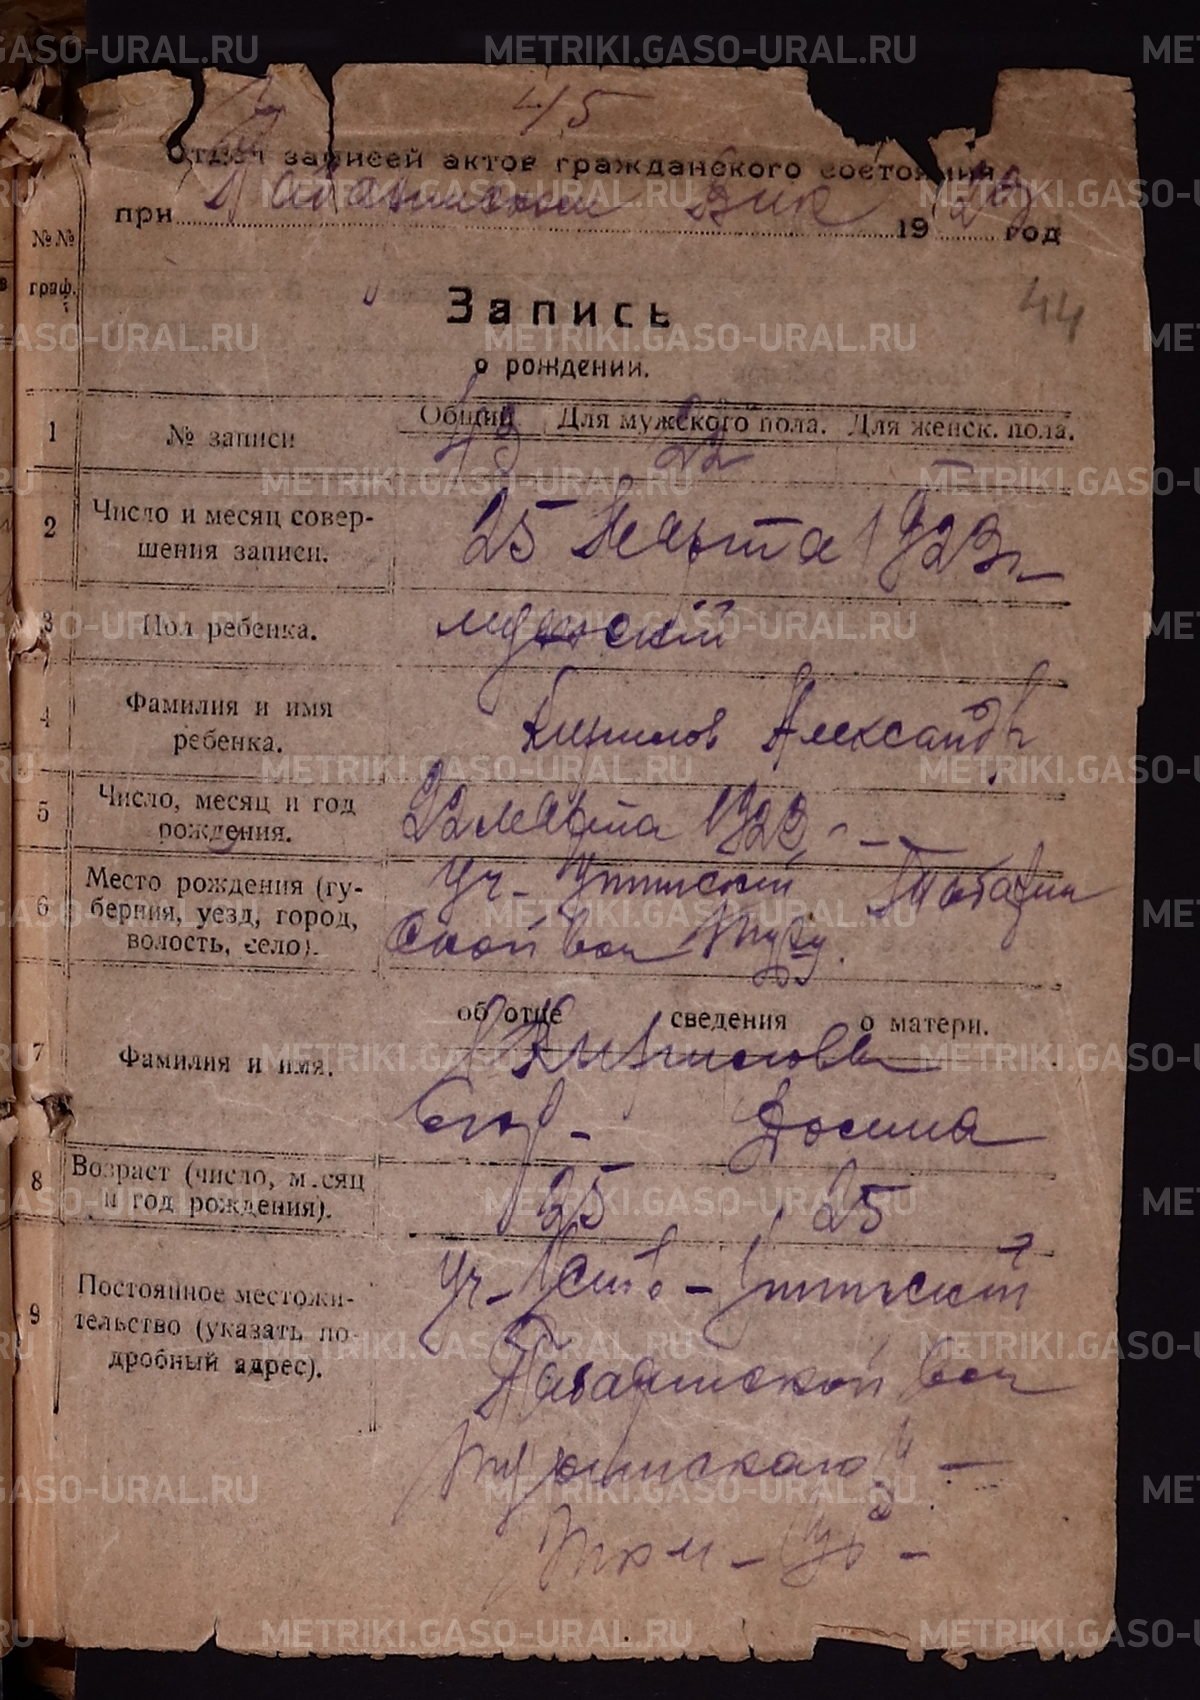 45
Отдел записей актов гражданского состояния
при Табаринском Вик 1923 год
44
№№ граф.
Запись
о рождении.
1 № записи Общий Для мужского пола. Для женск. пола.
22 —
2 Число и месяц совершения записи. 25 Марта 1923 г.
3 Пол ребенка. мужский
4 Фамилия и имя ребенка. Александр
5 Число, месяц и год рождения. 22 марта 1923 —
6 Место рождения (губерния, уезд, город, волость, село). Уч-
ской вол
об отце сведения о матери.
7 Фамилия и имя.
Егор
8 Возраст (число, месяц и год рождения). 25 25
9 Постоянное местожительство (указать подробный адрес). Уч-
Табаринской вол
Туринскаго у —
METRIKI.GASO-URAL.RU